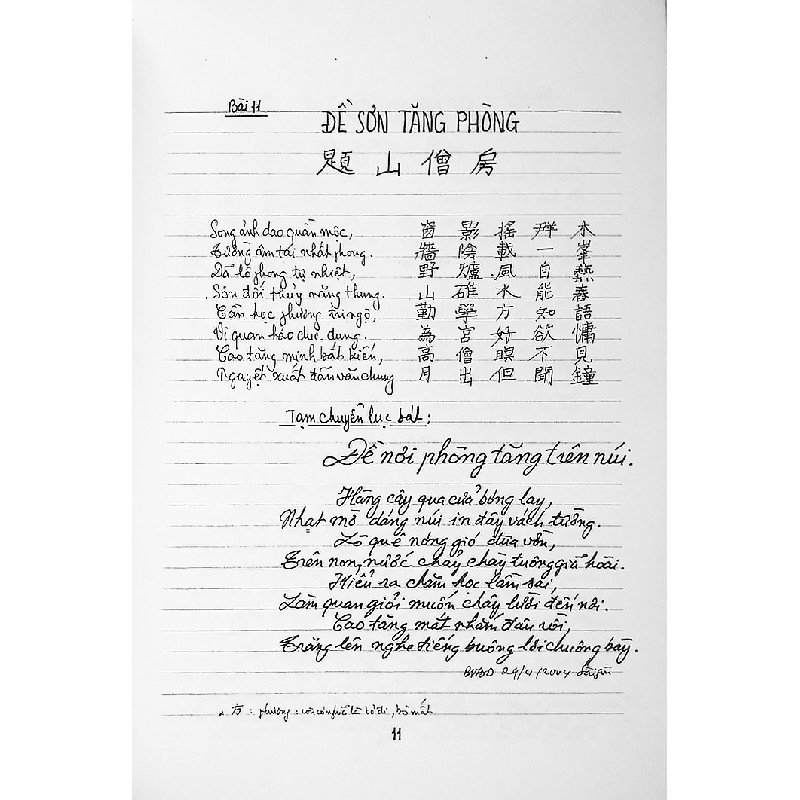 Bài 11
ĐỀ SƠN TĂNG PHÒNG
題山僧房
Song ảnh dao quần mộc, 窗影搖群木
Tường âm tái nhất phong. 牆陰載一峯
Dã lô phong tự nhiệt, 野爐風自熱
Sơn đối thủy năng thung. 山碓水能舂
Cần học phương tri ngộ, 勤學方知語
Vi quan hảo dục dung. 為官好欲慵
Cao tăng mịnh bất kiến, 高僧瞑不見
Nguyệt xuất đán văn chung 月出但聞鐘
Tạm chuyển lục bát:
Đề nơi phòng tăng trên núi.
Hàng cây qua cửa bóng lay,
Nhạt mờ dáng núi in đây vách tường.
Lò quê nóng gió đưa vờn,
Trên non, nước chảy chày tuông giã hoài.
Hiểu ra chăm học lầm sai,
Làm quan giỏi muốn chây lười đến nơi.
Cao tăng mắt nhắm đâu rồi,
Trăng lên nghe tiếng buông lơi chuông bay.
24/4/2004 Sàigòn
方: phương: bỏ đi, bỏ mất
11